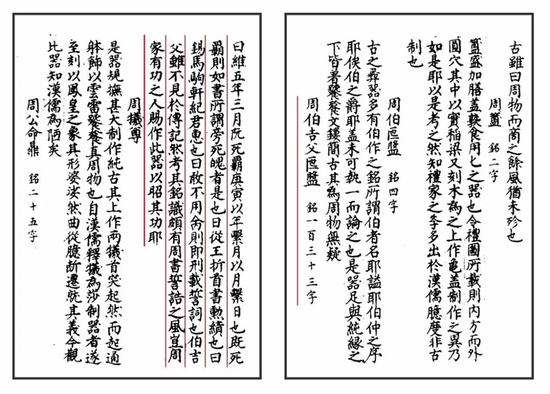 古雖曰周物而商之餘風猶未殄也
周簠 銘二字
簠盛加膳蓋食用匕之器也今禮圖所載則內方而外
圓穴其中以實稻粱又刻木為之上作龜蓋制作之異乃
如是耶以是考之然知禮家之學多出於漢儒臆度非古
制也
周伯匜盤 銘四字
古之彝器多有伯作之銘所謂伯者名耶謚耶伯仲之序
耶侯伯之爵耶蓋未可執一而論之也是器足與純緣之
下皆著饕餮文鏤簡古其為周物無疑
周伯吉父匜盤 銘一百三十三字
曰維五年三月既死霸庚寅以年繫月以月繫日也既死
霸則如書所謂旁死魄者是也曰從王折首書勳績也曰
錫馬駒軒紀君惠也曰敢不用命則即刑載誓詞也伯吉
父雖不見於傳記然考其銘識頗有周書誓誥之風豈周
家有功之人賜作此器以昭其功耶
周犧尊
是器規撫甚大制作純古其上作兩犧首突起然而起通
體飾以雲雷饕餮真周物也自漢儒釋犧為莎制器者遂
至刻以鳳皇之象其形婆娑然曲從臆斷遷就其義今觀
比器知漢儒為陋矣
周公命鼎 銘二十五字